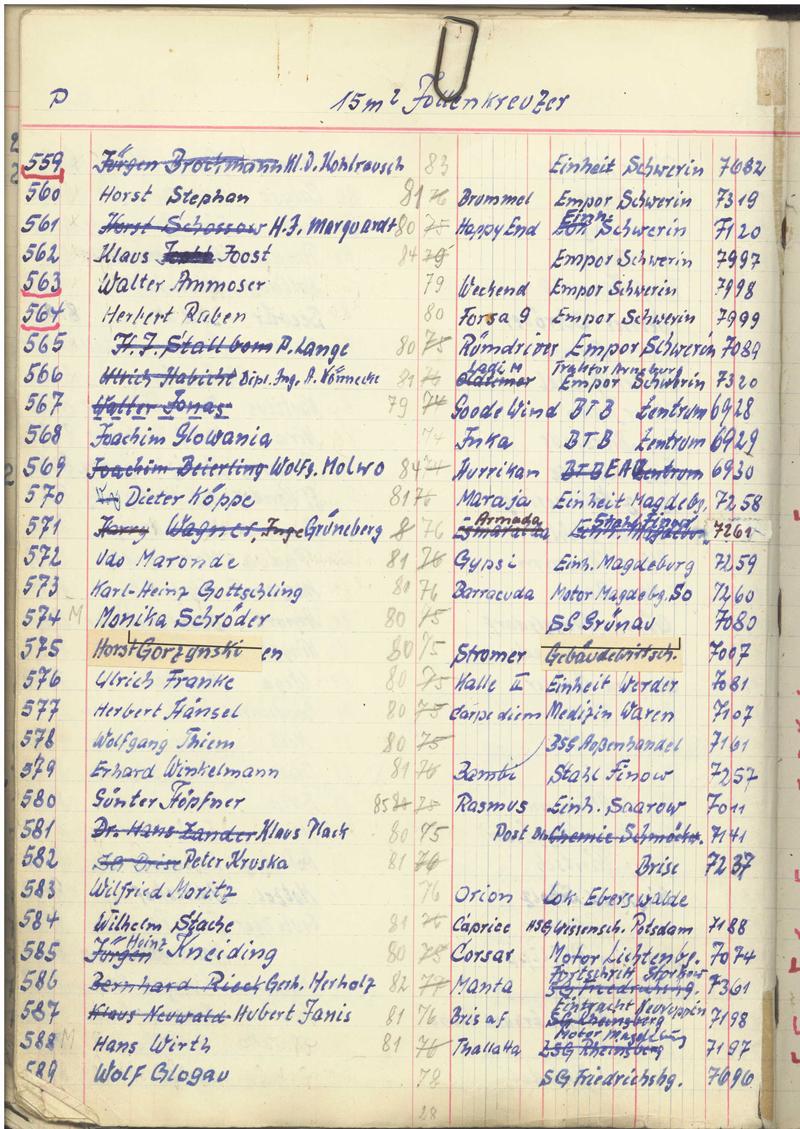 P 15m² Jollenkreuzer
559 Jürgen Brockmann M.D. Kohlrausch 83 Einheit Schwerin 7682
560 Horst Stephan 81 76 Brummel Empor Schwerin 7319
561 Horst Schossow H.J. Marquardt 80 75 Happy End Einh. Schwerin 7120
562 Klaus Joost 84 79 Empor Schwerin 7997
563 Walter Ammoser 79 Weekend Empor Schwerin 7998
564 Herbert Raben 80 Forsa 9 Empor Schwerin 7999
565 H.J. Stallbom P. Lange 80 75 Rümdriver Empor Schwerin 7089
566 Ulrich Habicht Dipl. Ing. A. Könnecke 81 76 Oldtimer Ladi M Traktor Arneburg Empor Schwerin 7320
567 Walter Jonas 79 74 Goode Wind BTB Zentrum 6928
568 Joachim Glowania 74 Inka BTB Zentrum 6929
569 Joachim Beierling Wolfg. Molwo 84 74 Hurrikan BTB EAB Zentrum 6930
570 Dieter Köppe 81 76 Maraja Einheit Magdebg. 7258
571 Harry Wagner Inge Grüneberg 76 Armada Stahl Finow 7261
572 Udo Maronde 81 76 Gypsi Einh. Magdeburg 7259
573 Karl-Heinz Gottschling 80 76 Barracuda Motor Magdebg. So 7260
574 M Monika Schröder 80 75 SG Grünau 7080
575 Horst Gorzynski en 80 75 Stromer Gebäudewirtsch. 7007
576 Ulrich Franke 80 75 Kalle II Einheit Werder 7081
577 Herbert Hänsel 80 75 Carpe diem Medizin Waren 7107
578 Wolfgang Thiem 80 75 BSG Außenhandel 7161
579 Erhard Winkelmann 81 76 Bambi Stahl Finow 7257
580 Günter Höpfner 85 81 75 Rasmus Einh. Saarow 7011
581 Dr. Hans Zander Klaus Plack 80 75 Post Chemie Schmöckw. 7141
582 Peter Kruska 81 76 Brise 7237
583 Wilfried Moritz 76 Orion Lok Eberswalde
584 Wilhelm Stache 81 76 Caprice HSG Wissensch. Potsdam 7188
585 Jürgen Heinz Kneiding 80 75 Corsar Motor Lichtenbg. 7074
586 Bernhard Rieck Gerh. Herholz 82 77 Manta Fortschritt Storkow SG Friedrichhg. 7361
587 Klaus Neuwald Hubert Janis 81 76 Brisaf Eintracht Neuruppin SG Rheinsberg 7198
588 M Hans Wirth 81 76 Thallatta Motor Magdeburg SG Rheinsberg 7197
589 Wolf Glogau 78 SG Friedrichshg. 7696
28